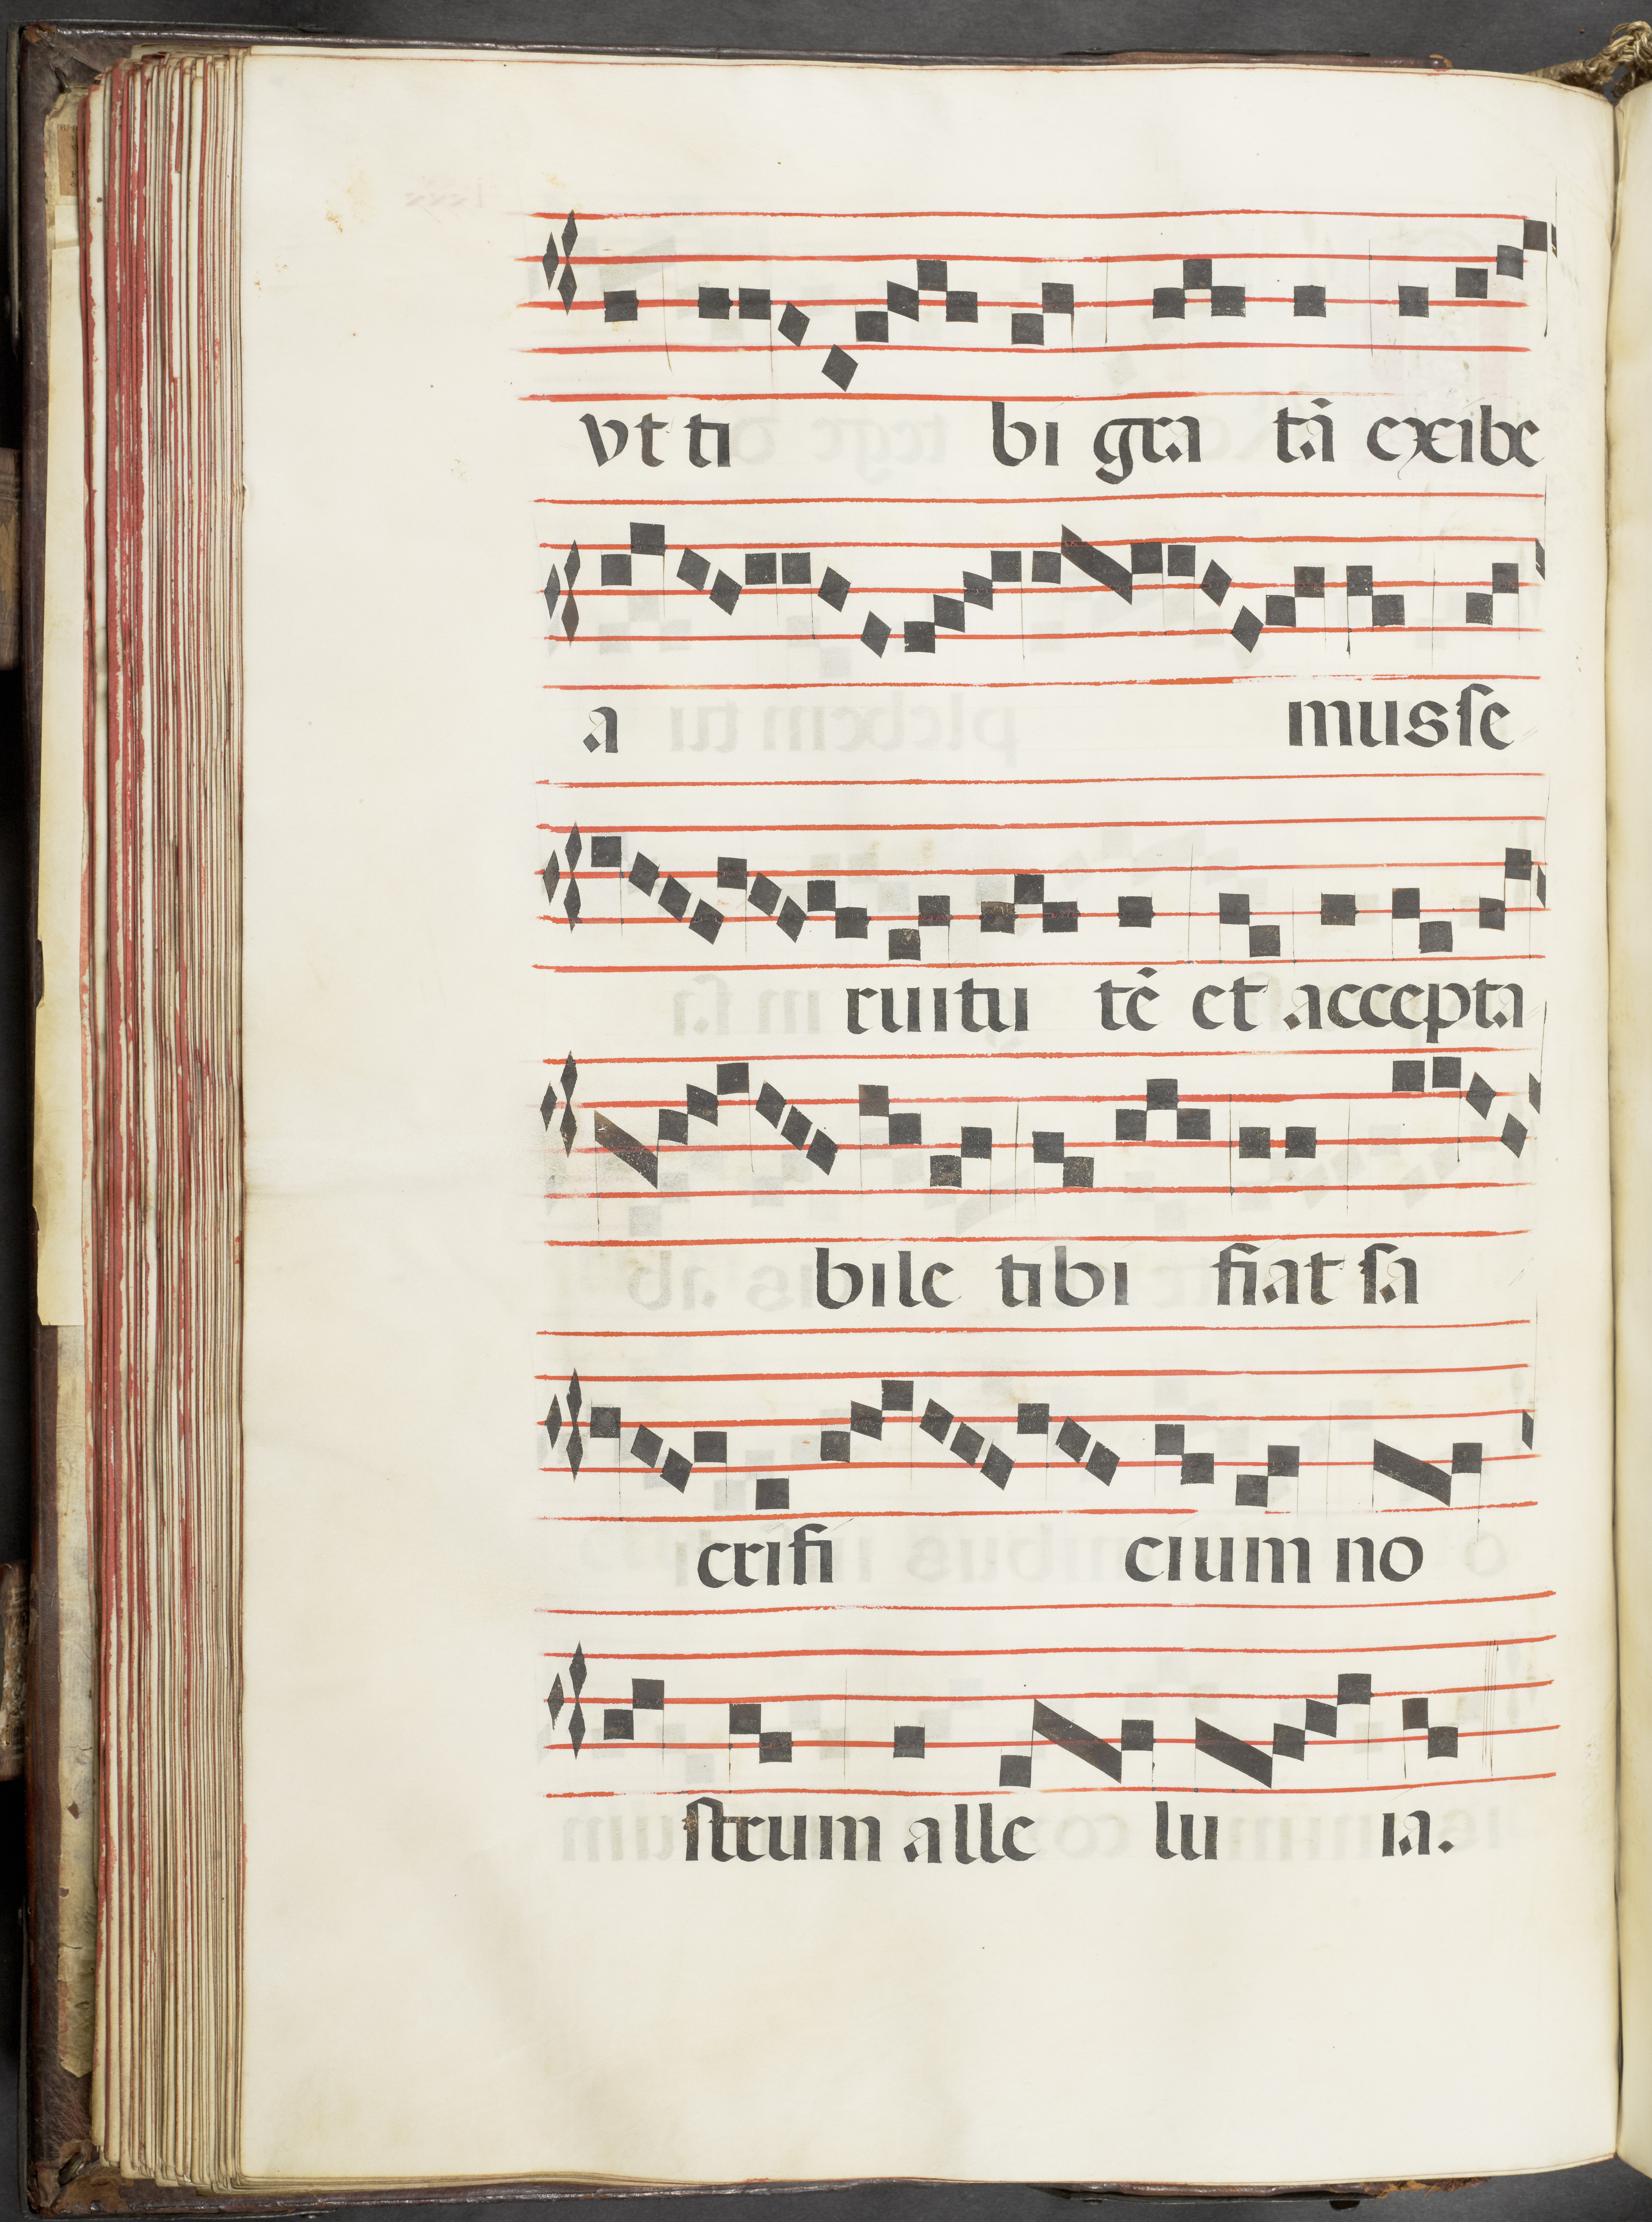 vt ti bi gra tā exibe
a mus se
ruitu tē et accepta
bile tibi fiat sa
crifi cium no
strum alle lu ia.